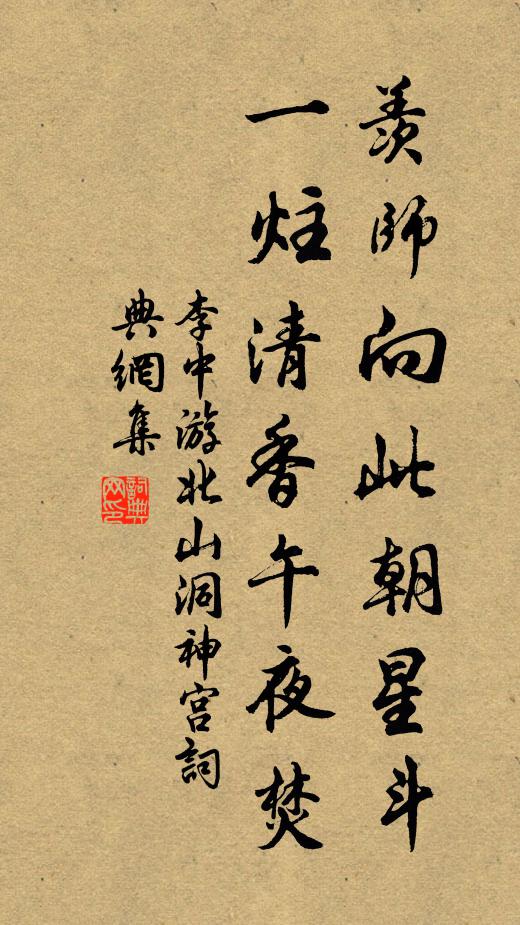 羨師向此朝星斗
一炷清香午夜焚
李中游北山洞神宮詞
典網集
詞典
网印